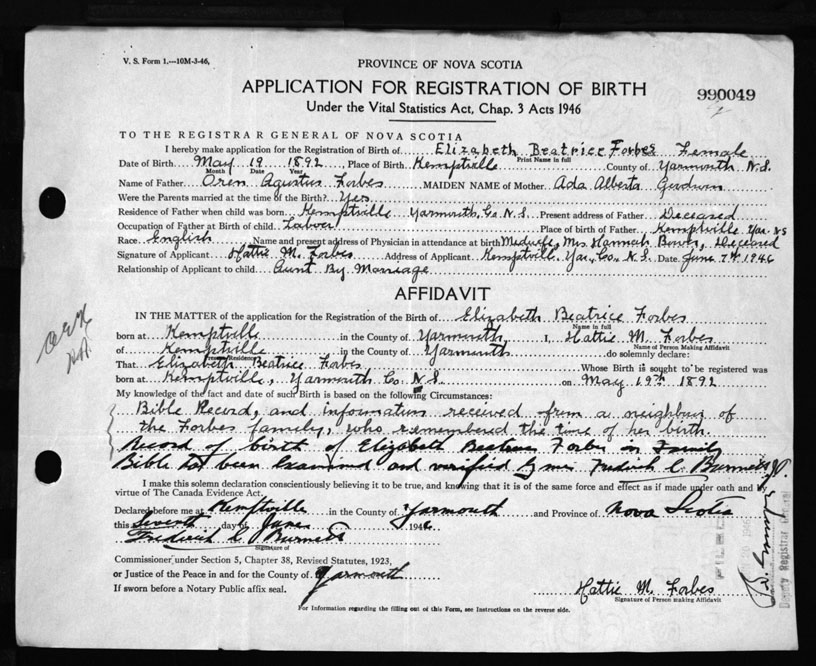 V. S. Form 1.---10M-3-46,
PROVINCE OF NOVA SCOTIA
APPLICATION FOR REGISTRATION OF BIRTH
990049
Under the Vital Statistics Act, Chap. 3 Acts 1946
TO THE REGISTRAR GENERAL OF NOVA SCOTIA
I hereby make application for the Registration of Birth of Elizabeth Beatrice Forbes Female
Print Name in full
Date of Birth May 19 1892, Place of Birth Kemptville County of Yarmouth N.S.
Month Date Year
Name of Father Oren Agustus Forbes MAIDEN NAME of Mother Ada Alberta Goodwin
Were the Parents married at the time of the Birth? Yes
Residence of Father when child was born. Kemptville Yarmouth Co N.S. Present address of Father Deceased
Occupation of Father at Birth of child Labour Place of birth of Father Kemptville Yar. NS
Race English Name and present address of Physician in attendance at birth Midwife, Mrs Hannah Deceased
Signature of Applicant Hattie M. Forbes Address of Applicant Kemptville Yar. Co. N.S. Date June 7th 1946
Relationship of Applicant to child Aunt By Marriage
AFFIDAVIT
IN THE MATTER of the application for the Registration of the Birth of Elizabeth Beatrice Forbes
Name in full
born at Kemptville in the County of Yarmouth I, Hattie M. Forbes
Name of Person Making Affidavit
of Kemptville in the County of Yarmouth do solemnly declare:
Present Residence
That Elizabeth Beatrice Forbes Whose Birth is sought to be registered was
born at Kemptville, Yarmouth Co. N.S. on May 19th 1892
My knowledge of the fact and date of such Birth is based on the following Circumstances:
Bible Record, and information received from a neighbur of
the Forbes family, who remembered the time of her birth.
Record of birth of Elizabeth Beatrice Forbes in Family
Bible has been examined and verified by me Fredrick C. Burnett J.P.
I make this solemn declaration conscientiously believing it to be true, and knowing that it is of the same force and effect as if made under oath and by
virtue of The Canada Evidence Act.
Declared before me at Kemptville in the County of Yarmouth and Province of Nova Scotia
this Seventh day of June 1946
Frederick C. Burnett
Signature of
Commissioner under Section 5, Chapter 38, Revised Statutes, 1923,
or Justice of the Peace in and for the County of Yarmouth
If sworn before a Notary Public affix seal.
Hattie M. Forbes
Signature of Person making Affidavit
For Information regarding the filling out of this Form, see Instructions on the reverse side.
Deputy Registrar General